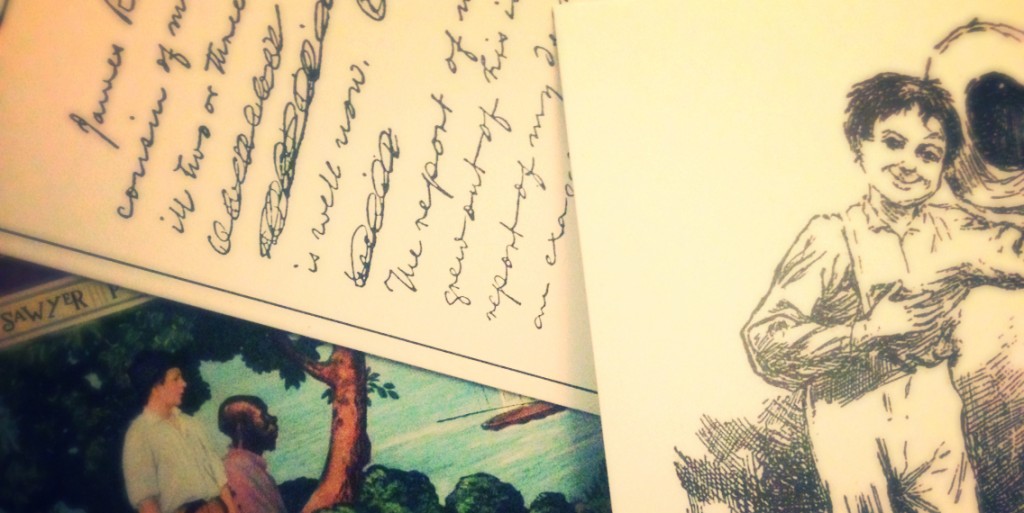 James R
cousin of m
ill two or three
is well now.
The report of m
grew out of his i
report of my d
an exa
SAWYER